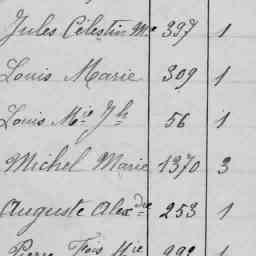 Jules Célestin Me 397 1
Louis Marie 309 1
Louis Mie Jh 56 1
Michel Marie 1370 3
Auguste Alexdre 253 1
Pierre Fois Mre 1